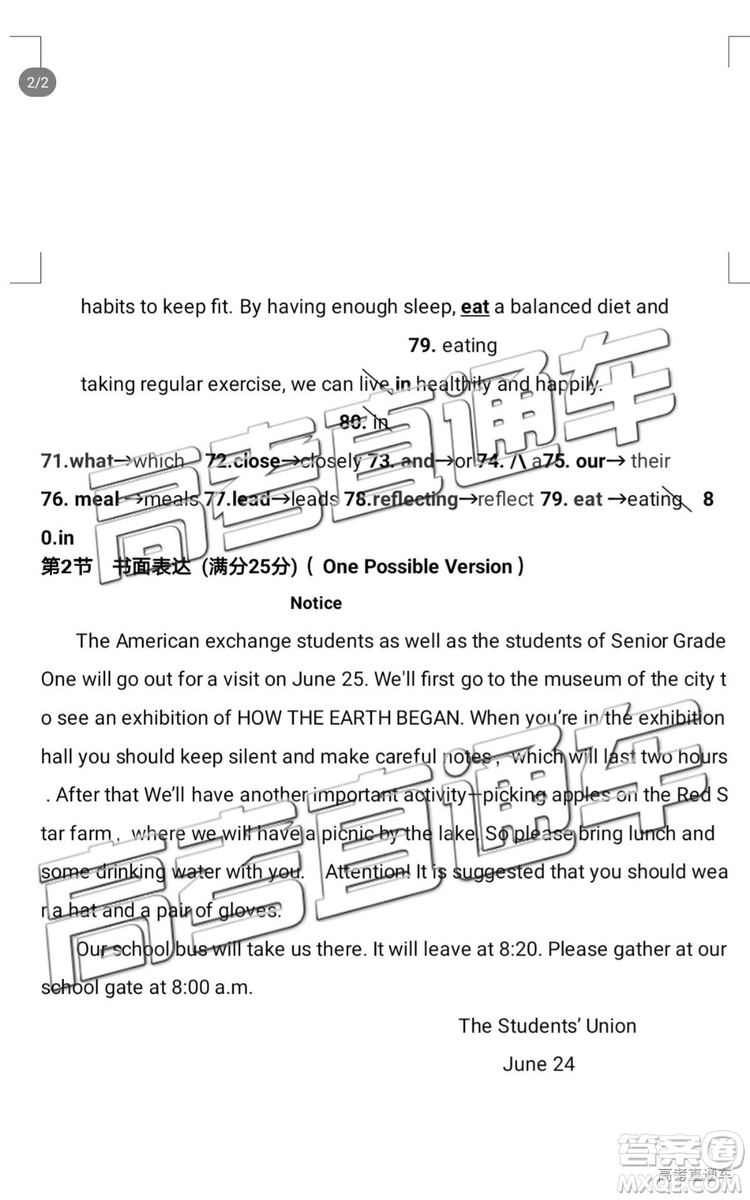 2/2
habits to keep fit. By having enough sleep, eat a balanced diet and
79. eating
taking regular exercise, we can live in healthily and happily.
80. in
71.what→which 72.close→closely 73. and→or 74. /\ a75. our→ their
76. meal→meals 77.lead→leads 78.reflecting→reflect 79. eat →eating 8
0.in
第2节 书面表达 (满分25分)( One Possible Version )
Notice
The American exchange students as well as the students of Senior Grade
One will go out for a visit on June 25. We'll first go to the museum of the city t
o see an exhibition of HOW THE EARTH BEGAN. When you're in the exhibition
hall you should keep silent and make careful notes , which will last two hours
. After that We'll have another important activity—picking apples on the Red S
tar farm , where we will have a picnic by the lake. So please bring lunch and
some drinking water with you. Attention! It is suggested that you should wea
r a hat and a pair of gloves.
Our school bus will take us there. It will leave at 8:20. Please gather at our
school gate at 8:00 a.m.
The Students' Union
June 24
高考直通车
高考直通车
答案卷
高考直通车
MXQE.COM